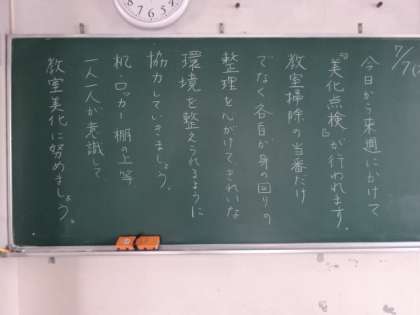 今日から来週にかけて
『美化点検』が行われます。
教室掃除の当番だけ
でなく各自が身の回りの
整理を心がけてきれいな
環境を整えられるように
協力していきましょう。
机・ロッカー・棚の上等
一人一人が意識して
教室美化に努めましょう。